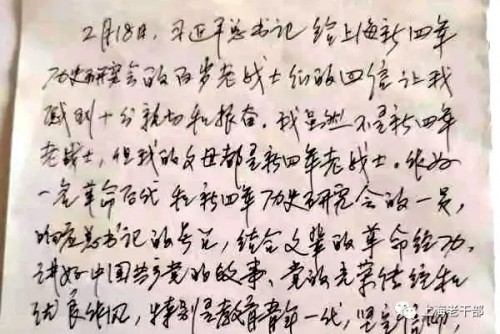 2月18日,习近平总书记给上海新四军
历史研究会的百岁老战士们的回信让我
感到十分亲切和振奋。我虽然不是新四军
老战士,但我的父母都是新四军老战士。作为
一名革命后代和新四军历史研究会的一员,
响应总书记的号召,结合父辈的革命经历,
讲好中国共产党的故事、党的光荣传统和
优良作风,特别是教育青年一代,坚定信仰
上海老干部